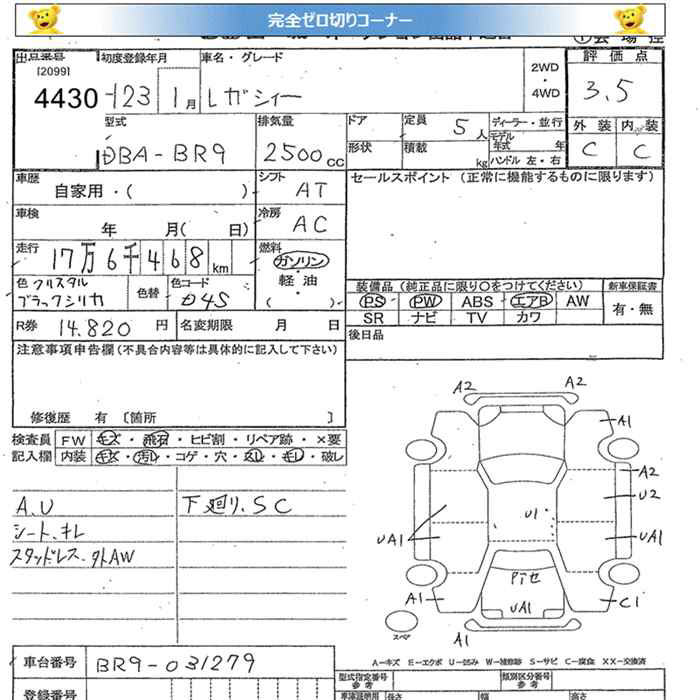 完全ゼロ切りコーナー
出品番号
[2099]
4430
初度登録年月
-23 1月
車名・グレード
レガシィー
2WD
・
4WD
評価点
3.5
外装 内装
C C
型式
DBA-BR9
排気量
2500cc
ドア
形状
定員 5人
積載 kg
ディーラー・並行
モデル
年式 年
ハンドル 左・右
車歴
自家用・( )
シフト
AT
セールスポイント (正常に機能するものに限ります)
車検
年 月( 日)
冷房
AC
走行
17万6千468km
燃料
ガソリン
軽油
・
( )
色 クリスタル
ブラックシリカ
色替
色コード
D4S
装備品 (純正品に限り○をつけてください)
新車保証書
PS PW ABS エアB AW
有・無
SR ナビ TV カワ
R券 14.820 円
名変期限 月 日
後日品
注意事項申告欄(不具合内容等は具体的に記入して下さい)
修復歴 有 〔箇所 〕
検査員 FW キズ・飛石・ヒビ割・リペア跡・×要
記入欄 内装 キズ・汚レ・コゲ・穴・スレ・キレ・破レ
A.U
シート.キレ
スタッドレス.外AW
下廻り.SC
A2
A2
A1
A2
U2
U1
UA1
UA1
Pイセ
A1
UA1
C1
スペア
A1
A-キズ E-エクボ U-凹み W-補修跡 S-サビ C-腐食 XX-交換済
車台番号
BR9-031279
型式指定番号
参考
類別区分番号
参考
登録番号
長さ
幅
高さ